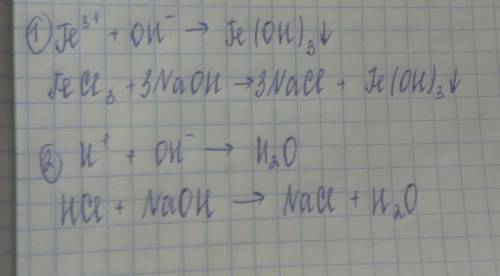 ① Fe³⁺ + OH⁻ → Fe(OH)₃↓
FeCl₃ + 3NaOH → 3NaCl + Fe(OH)₃↓
② H⁺ + OH⁻ → H₂O
HCl + NaOH → NaCl + H₂O